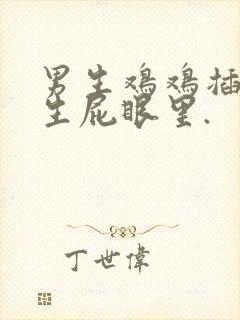 男生鸡鸡插
生屁眼里.
丁世偉